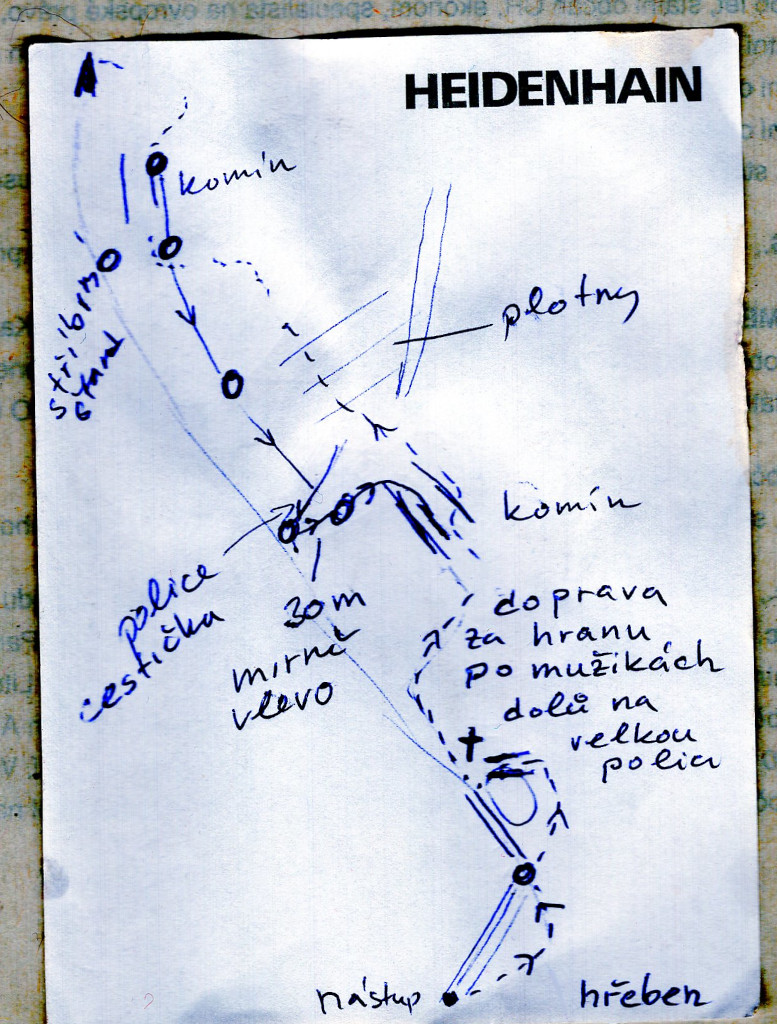 HEIDENHAIN
komín
stříbrný
plotny
komín
police
cestička
30 m
mírně
vlevo
doprava
za hranu
po mužikách
dolů na
velkou
polici
nástup
hřeben